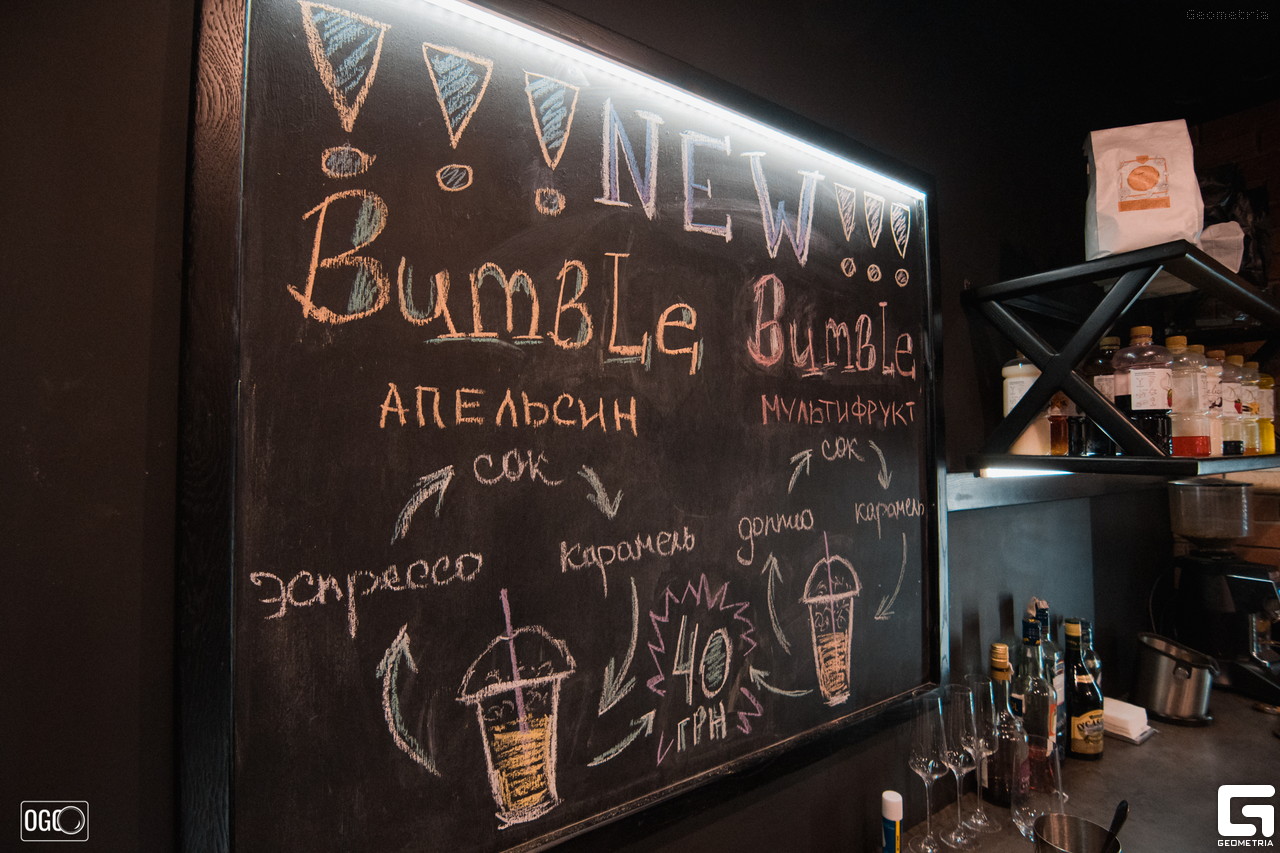 Geometria
!!! NEW !!!
Bumble
АПЕЛЬСИН
сок
эспрессо
карамель
Bumble
МУЛЬТИФРУКТ
сок
доппио
карамель
40
ГРН
OGO
GEOMETRIA